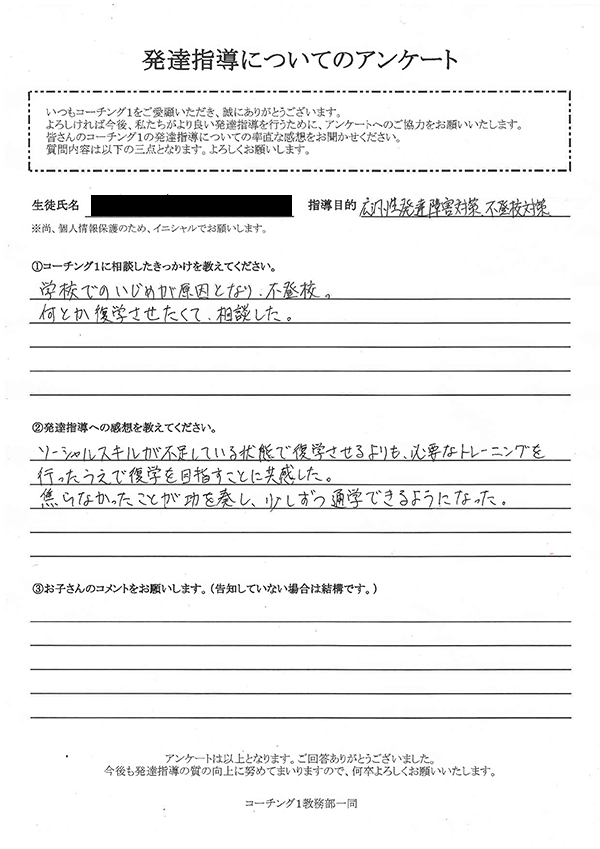 発達指導についてのアンケート
いつもコーチング1をご愛顧いただき、誠にありがとうございます。
よろしければ今後、私たちがより良い発達指導を行うために、アンケートへのご協力をお願いいたします。
皆さんのコーチング1の発達指導についての率直な感想をお聞かせください。
質問内容は以下の三点となります。よろしくお願いします。
生徒氏名 指導目的 広汎性発達障害対策 不登校対策
※尚、個人情報保護のため、イニシャルでお願いします。
①コーチング1に相談したきっかけを教えてください。
学校でのいじめが原因となり、不登校。
何とか復学させたくて、相談した。
②発達指導への感想を教えてください。
ソーシャルスキルが不足している状態で復学させるよりも、必要なトレーニングを
行ったうえで復学を目指すことに共感した。
焦らなかったことが功を奏し、少しずつ通学できるようになった。
③お子さんのコメントをお願いします。（告知していない場合は結構です。）
アンケートは以上となります。ご回答ありがとうございました。
今後も発達指導の質の向上に努めてまいりますので、何卒よろしくお願いいたします。
コーチング1教務部一同